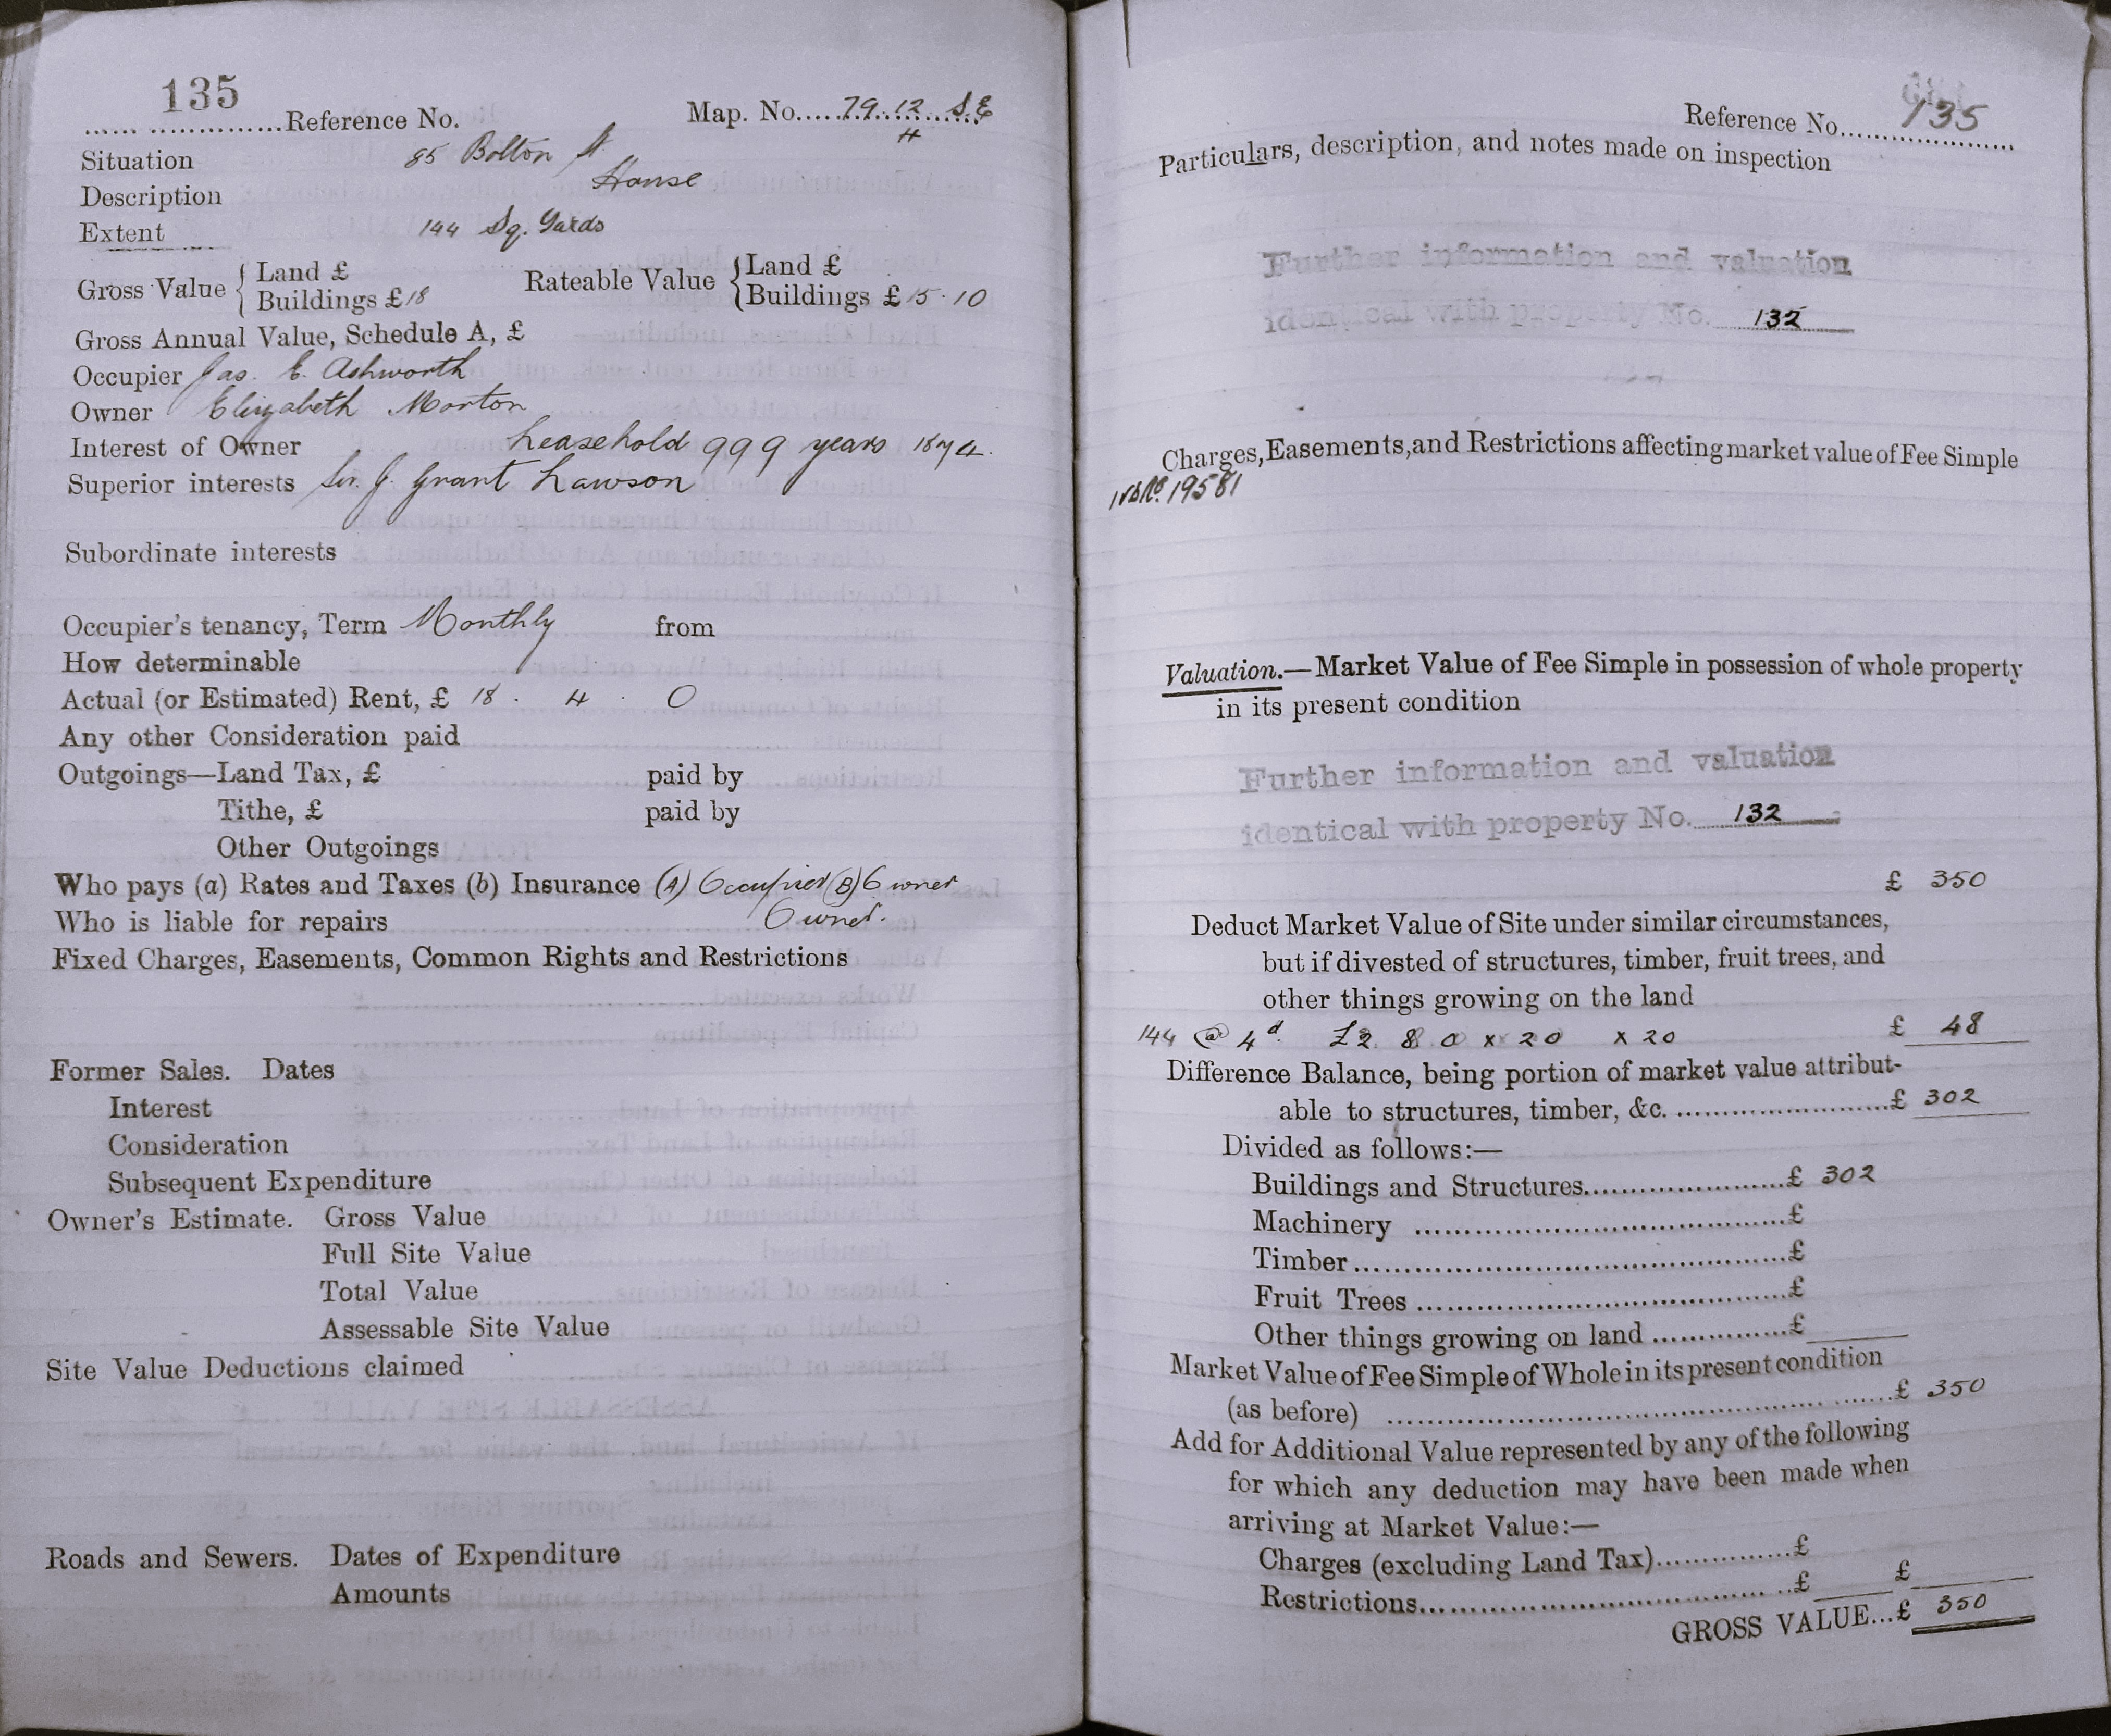 135
Reference No. Map. No. 79.12 S.E
4
Situation 85 Bolton St
Description House
Extent 144 Sq. Yards
Gross Value { Land £ Rateable Value { Land £
Buildings £ 18 Buildings £ 15.10
Gross Annual Value, Schedule A, £
Occupier Jas. E. Ashworth
Owner Elizabeth Morton
Interest of Owner Leasehold 999 years 1874.
Superior interests Sir. J. Grant Lawson
Subordinate interests
Occupier's tenancy, Term Monthly from
How determinable
Actual (or Estimated) Rent, £ 18 . 4 . 0
Any other Consideration paid
Outgoings—Land Tax, £ paid by
Tithe, £ paid by
Other Outgoings
Who pays (a) Rates and Taxes (b) Insurance (A) Occupier (B) Owner
Who is liable for repairs Owner.
Fixed Charges, Easements, Common Rights and Restrictions
Former Sales. Dates
Interest
Consideration
Subsequent Expenditure
Owner's Estimate. Gross Value
Full Site Value
Total Value
Assessable Site Value
Site Value Deductions claimed
Roads and Sewers. Dates of Expenditure
Amounts
Reference No. 135
Particulars, description, and notes made on inspection
Further information and valuation
identical with property No. 132
Charges, Easements, and Restrictions affecting market value of Fee Simple
19581
Valuation.—Market Value of Fee Simple in possession of whole property
in its present condition
Further information and valuation
identical with property No. 132
£ 350
Deduct Market Value of Site under similar circumstances,
but if divested of structures, timber, fruit trees, and
other things growing on the land
144 @ 4d. £2 8 0 x 20 x 20 £ 48
Difference Balance, being portion of market value attribut-
able to structures, timber, &c. £ 302
Divided as follows:—
Buildings and Structures £ 302
Machinery £
Timber £
Fruit Trees £
Other things growing on land £
Market Value of Fee Simple of Whole in its present condition
(as before) £ 350
Add for Additional Value represented by any of the following
for which any deduction may have been made when
arriving at Market Value:—
Charges (excluding Land Tax) £
Restrictions £ £
GROSS VALUE...£ 350